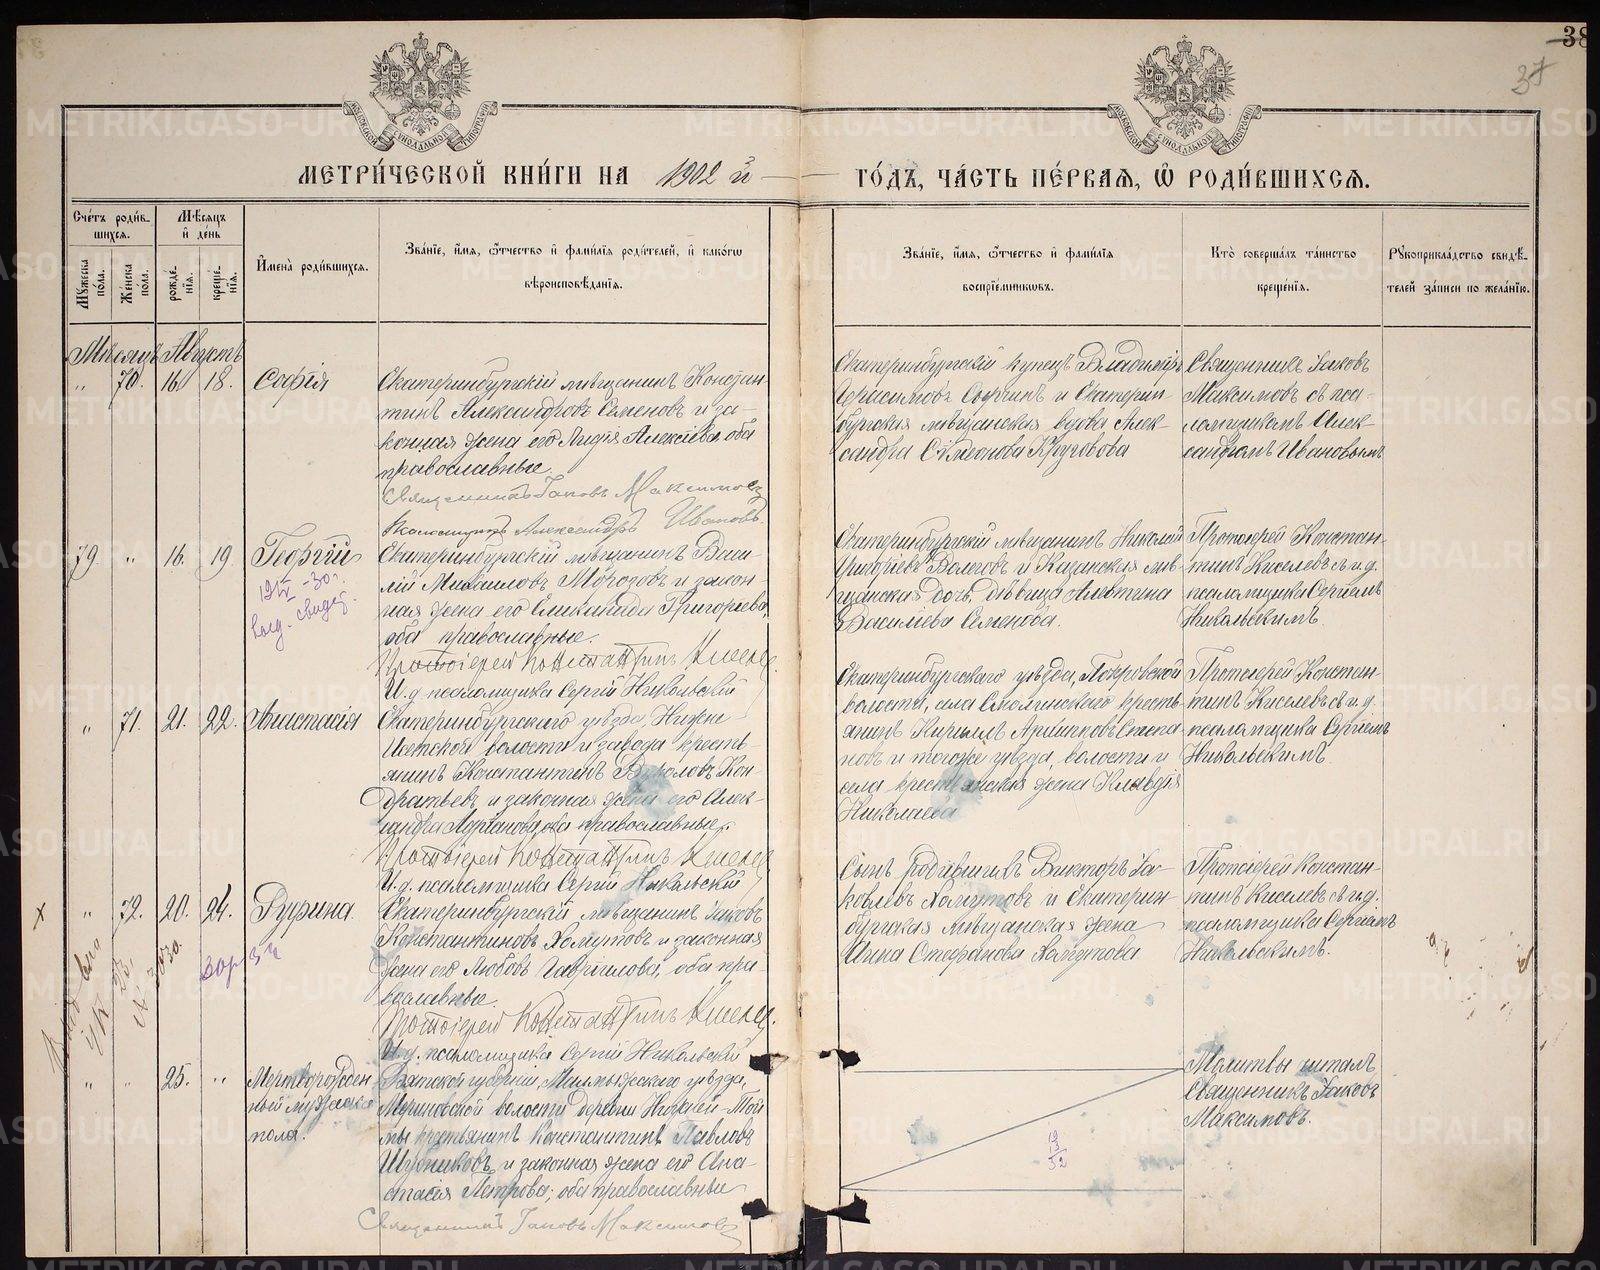 38
37
МЕТРИ́ЧЕСКОЙ КНИ́ГИ НА 1902 й
ГО́ДЪ, ЧА́СТЬ ПЕ́РВАѦ, Ѽ РОДИ́ВШИХСѦ.
Сче́тъ роди́в-
шихсѧ.
Мꙋ́жеска по́ла.
Же́нска по́ла.
Мѣ́сѧцъ и҆ де́нь
рожде́-
нїѧ.
креще́-
нїѧ.
И҆мена̀ роди́вшихсѧ.
Зва́нїе, и҆́мѧ, ѻ҆́тчество и҆ фами́лїѧ роди́телей, и҆ како́гѡ
вѣроисповѣ́данїѧ.
Зва́нїе, и҆́мѧ, ѻ҆́тчество и҆ фами́лїѧ
воспрїе́мникѡвъ.
Кто̀ соверша́лъ та́инство
креще́нїѧ.
Рꙋкоприкла́дство свидѣ́-
телей за́писи по жела́нїю.
Мѣсяцъ Августъ
" 70. 16. 18. Софія
Екатеринбургскій мѣщанинъ Констан-
тинъ Александровъ Семеновъ и за-
конная жена его Лидія Алексіева оба
православные.
Священникъ Іаковъ Максимовъ
Псаломщикъ Александръ Ивановъ
Екатеринбургскій купецъ Владимиръ
Герасимовъ Сырчинъ и Екатерин
бургская мѣщанская вдова Алек-
сандра Сѵмеонова Круговова
Священникъ Іаковъ
Максимовъ съ пса-
ломщикомъ Алек-
сандромъ Ивановымъ
79. " 16. 19. Георгій
30 г.
выд. свидет.
Екатеринбургскій мѣщанинъ Васи-
лій Михаиловъ Морозовъ и закон-
ная жена его Еликонида Григоріева,
оба православные.
Протоіерей Константинъ Киселевъ
И. д. псаломщика Сергій Никольскій
Екатеринбургскій мѣщанинъ Николай
Григоріевъ Волковъ и Казанская мѣ-
щанская дочь, дѣвица Алевтина
Василіева Семенова.
Протоіерей Констан-
тинъ Киселевъ съ и. д.
псаломщика Сергіемъ
Никольскимъ.
" 71. 21. 22. Анастасія
Екатеринбургскаго уѣзда, Нижне
Исетской волости и завода кресть-
янинъ Константинъ Вуколовъ Кон-
дратьевъ и законная жена его Алек-
сандра, оба православные.
Протоіерей Константинъ Киселевъ
И. д. псаломщика Сергій Никольскій
Екатеринбургскаго уѣзда, Покровской
волости, села Смолинскаго кресть-
янинъ Кириллъ Степа-
новъ и тогоже уѣзда, волости и
села крестьянская жена Клавдія
Николаева
Протоіерей Констан-
тинъ Киселевъ съ и. д.
псаломщика Сергіемъ
Никольскимъ.
" 72. 20. 24. Руфина.
Екатеринбургскій мѣщанинъ Іаковъ
Константиновъ Хомутовъ и законная
жена его Любовь Гавріилова, оба пра-
вославные.
Протоіерей Константинъ Киселевъ.
И. д. псаломщика Сергій Никольскій
Сынъ родившихъ Викторъ Іа-
ковлевъ Хомутовъ и Екатерин-
бургская мѣщанская жена
Анна Стефанова Хомутова
Протоіерей Констан-
тинъ Киселевъ съ и. д.
псаломщика Сергіемъ
Никольскимъ.
" " 25. " Мертворожден
ный мужска
пола.
Вятской губерніи, Малмыжскаго уѣзда,
волости деревни Нижней-Той
мы крестьянинъ Константинъ Павловъ
Шубниковъ и законная жена его Ана-
стасія Петрова; оба православные
Священникъ Іаковъ Максимовъ
Молитвы читалъ
Священникъ Іаковъ
Максимовъ.